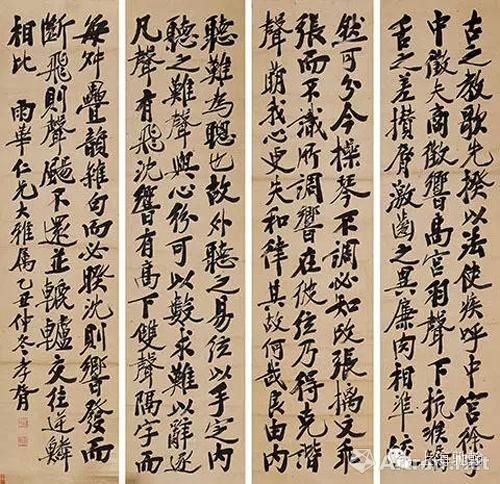 古之教歌先揆以法使疾呼中宮徐呼
中徵夫商徵響高宮羽聲下抗喉矯
舌之差攢脣激齒之異廉肉相準皎
然可分今操琴不調必知改張摛文乖
張而不識所調響在彼絃乃得克諧
聲萌我心更失和律其故何哉良由內
聽難為聰也故外聽之易絃以手定內
聽之難聲與心紛可以數求難以辭逐
凡聲有飛沈響有高下雙聲隔字而
每舛疊韻雜句而必睽沈則響發而
斷飛則聲颺不還並轆轤交往逆鱗
相比 雨華仁兄大雅屬 乙丑仲冬 孝胥